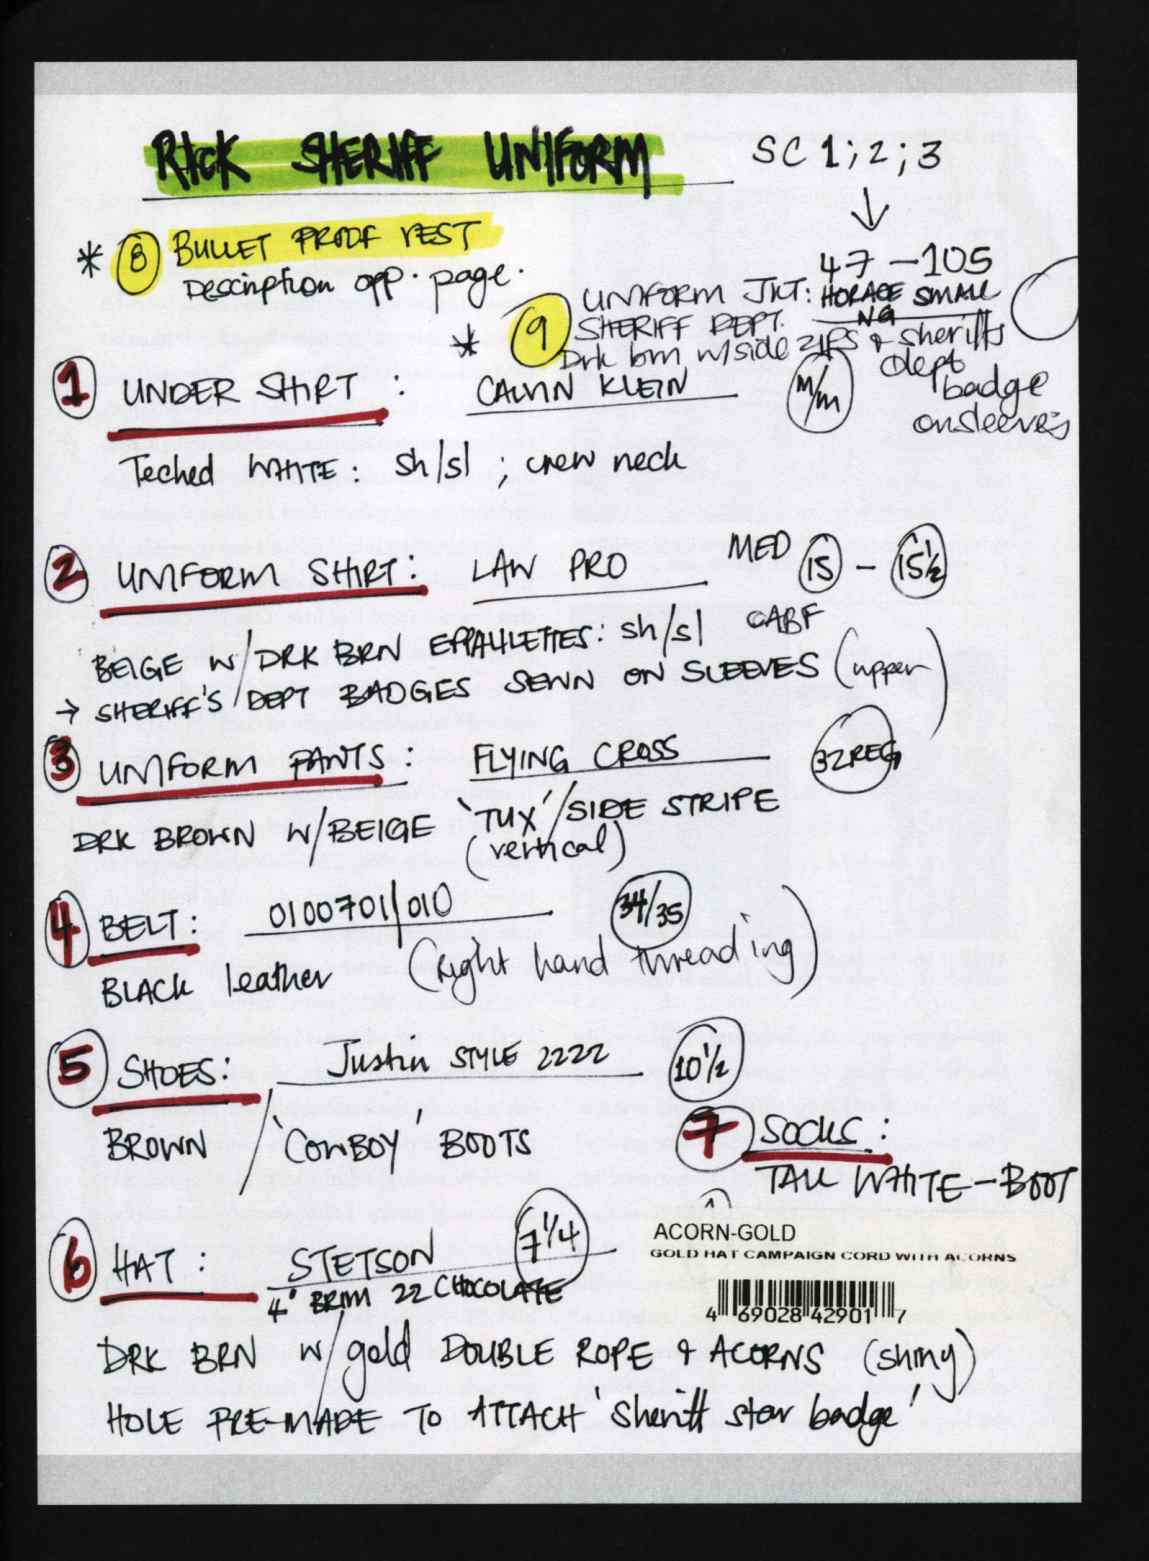 RICK SHERIFF UNIFORM
SC 1; 2; 3
47 - 105
* 8 BULLET PROOF VEST
Description opp. page.
* 9 UNIFORM JKT: HORACE SMALL
SHERIFF DEPT.
Drk brn w/side ZIPS & sheriffs
dept
badge
on sleeves
1 UNDER SHIRT : CALVIN KLEIN M/M
Teched WHITE : sh/sl ; crew neck
2 UNIFORM SHIRT : LAW PRO MED 15 - 15 1/2
BEIGE w/ DRK BRN EPPAULETTES : sh/sl CABF
→ SHERIFF'S DEPT BADGES SEWN ON SLEEVES (upper)
3 UNIFORM PANTS : FLYING CROSS 32 REG
DRK BROWN W/BEIGE 'TUX'/SIDE STRIPE
(vertical)
4 BELT : 0100701/010 34/35
BLACK leather (right hand threading)
5 SHOES: Justin STYLE 2222 10 1/2
BROWN / 'COWBOY' BOOTS
7 SOCKS :
TALL WHITE - BOOT
6 HAT : STETSON 7 1/4
4" BRIM 22 CHOCOLATE
ACORN-GOLD
GOLD HAT CAMPAIGN CORD WITH ACORNS
4 69028 42901 7
DRK BRN w/ gold DOUBLE ROPE & ACORNS (shiny)
HOLE PRE-MADE TO ATTACH 'Sheriff star badge'